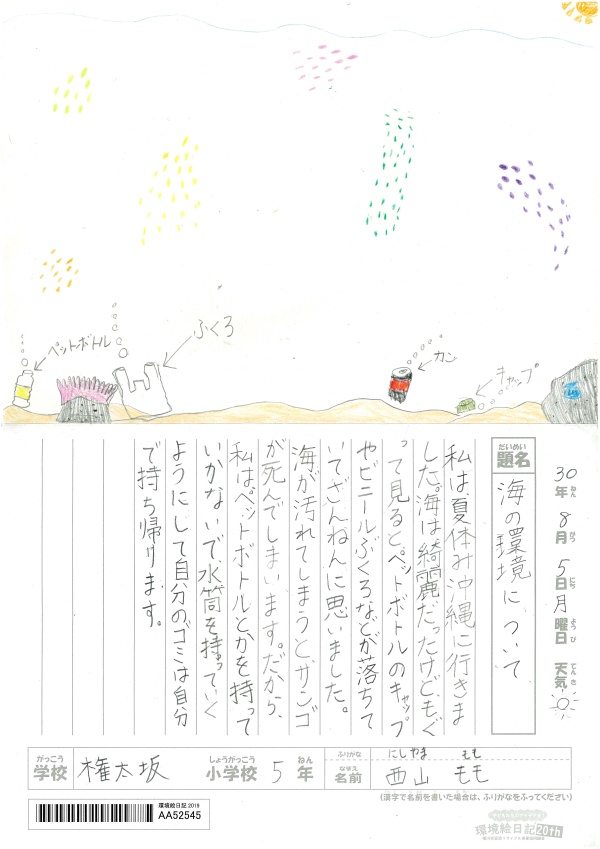 ペットボトル
ふくろ
カン
キャップ
30年8月5日月曜日 天気
ねん がつ にち ようび てんき
だいめい
題名
海の環境について
私は夏休み沖縄に行きま
した。海は綺麗だったけど、もぐ
って見るとペットボトルのキャップ
やビニールぶくろなどが落ちて
いてざんねんに思いました。
海が汚れてしまうとサンゴ
が死んでしまいます。だから、
私はペットボトルとかを持って
いかないで、水筒を持っていく
ようにして自分のゴミは自分
で持ち帰ります。
がっこう しょうがっこう ねん
学校 権太坂 小学校 5年
ふりがな にしやま もも
なまえ
名前 西山 もも
(漢字で名前を書いた場合は、ふりがなをふってください)
環境絵日記 2019
AA52545
環境絵日記 20th